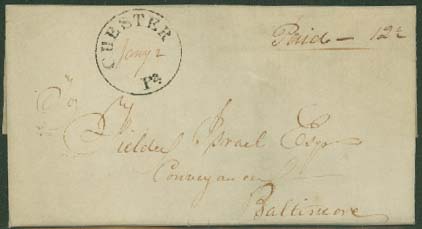 CHESTER
Jany 2
Pa.
Paid — 12½
To
Fielder Israel Esqr
Conveyancer
Baltimore